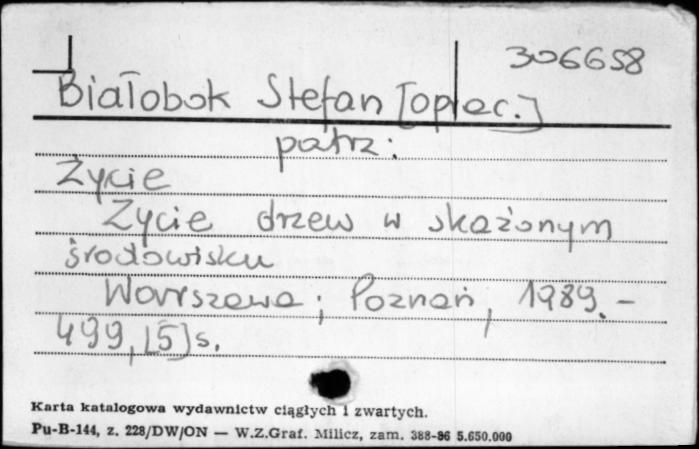 306658
Białobok Stefan [oprac.]
patrz:
Życie
Życie drzew w skażonym
środowisku
Warszawa; Poznań, 1989.-
499, [5] s.
Karta katalogowa wydawnictw ciągłych i zwartych.
Pu-B-144, z. 228/DW/ON — W.Z.Graf. Milicz, zam. 388-86 5.650.000